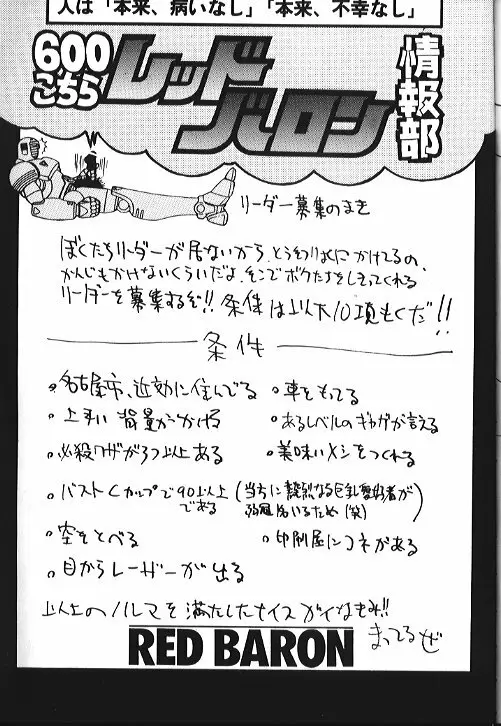 人は「本来、病いなし」「本来、不幸なし」
600
こちら
レッド
バロン
情報部
リーダー募集のまき
ぼくたちリーダーが居ないから、とうわりよくにかけてるの、
かんじもかけないくらいだよ、そこでボクたちをしきってくれる
リーダーを募集するぞ!! 条件は以下10項もくだ!!
条件
・名古屋市、近効に住んでる
・車をもってる
・上手い背景がかける
・あるレベルのギャグが言える
・必殺ワザが3つ以上ある
・美味いメシをつくれる
・バストCカップで90以上
である
(当ちに熱烈なる巨乳愛好者が
約1名いるため(笑))
・空をとべる
・印刷屋にコネがある
・目からレーザーが出る
以上のノルマを満たしたナイスガイなきみ!!
まってるぜ
RED BARON